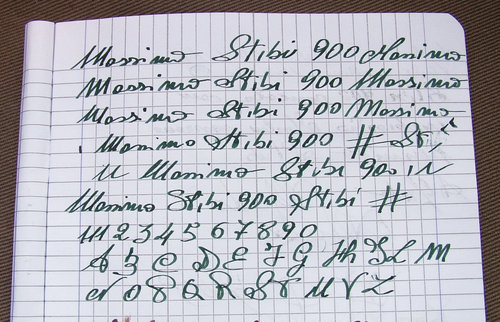 Massimo Stibi 900 Massimo
Massimo Stibi 900 Massimo
Massimo Stibi 900 Massimo
Massimo Stibi 900 H St
M Massimo Stibi 900 M
Massimo Stibi 900 Stibi H
1234567890
A B C D E F G H I L M
N O P Q R S T U V Z